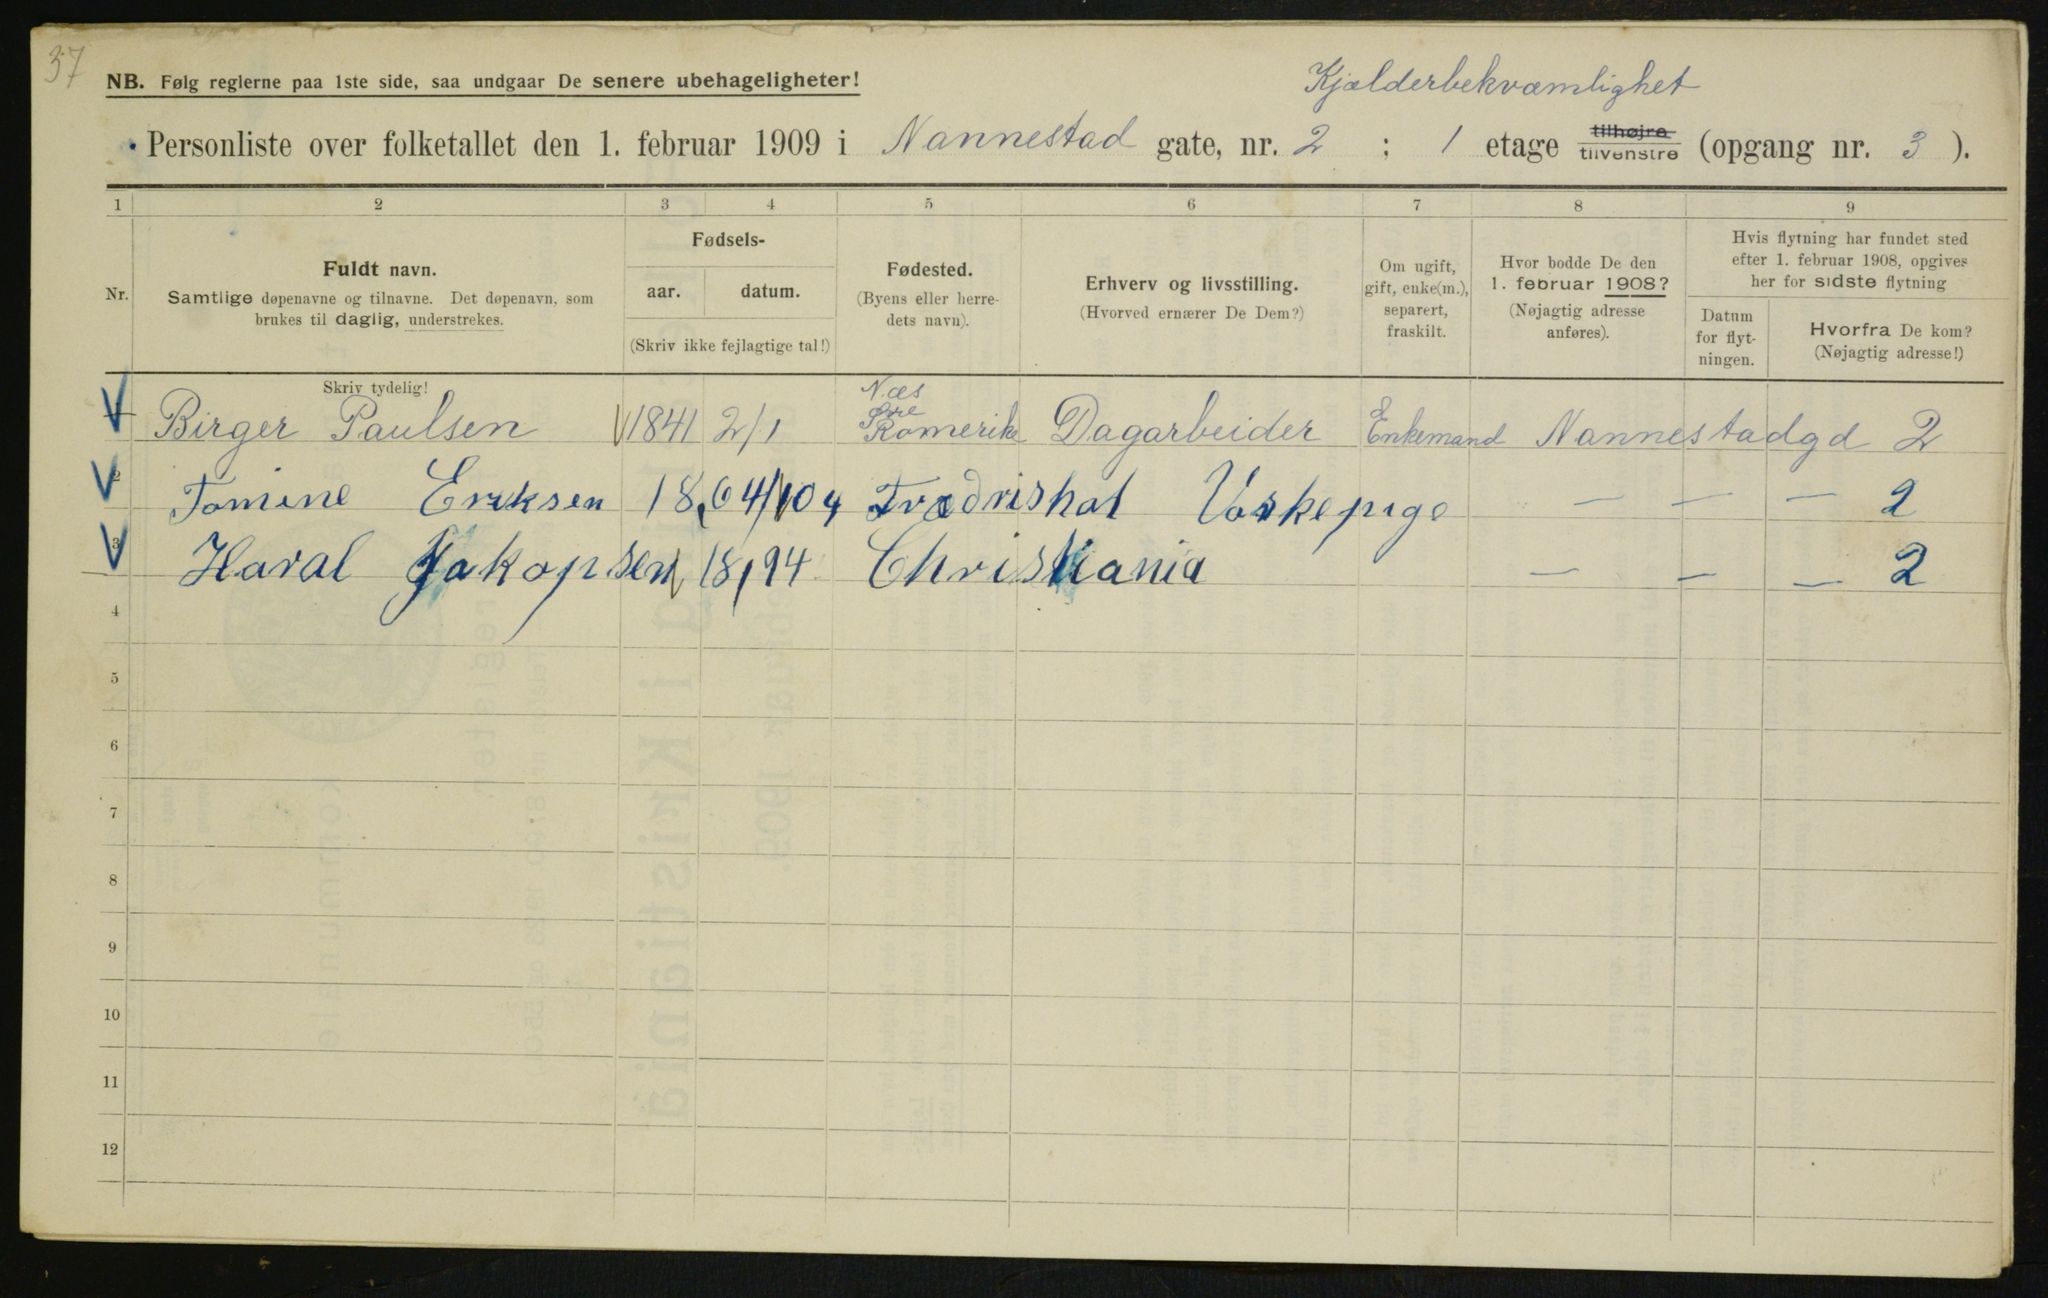 37
NB. Følg reglerne paa 1ste side, saa undgaar De senere ubehageligheter!
Kjælderbekvæmlighet
Personliste over folketallet den 1. februar 1909 i Nannestad gate, nr. 2 ; 1 etage tilhøjre tilvenstre (opgang nr. 3 ).
1 2 3 4 5 6 7 8 9
Nr.
Fuldt navn.
Samtlige døpenavne og tilnavne. Det døpenavn, som
brukes til daglig, understrekes.
Skriv tydelig!
Fødsels-
aar. datum.
(Skriv ikke fejlagtige tal!)
Fødested.
(Byens eller herre-
dets navn).
Erhverv og livsstilling.
(Hvorved ernærer De Dem?)
Om ugift,
gift, enke(m.),
separert,
fraskilt.
Hvor bodde De den
1. februar 1908?
(Nøjagtig adresse
anføres).
Hvis flytning har fundet sted
efter 1. februar 1908, opgives
her for sidste flytning
Datum
for flyt-
ningen.
Hvorfra De kom?
(Nøjagtig adresse!)
1 Birger Paulsen 1841 2/1 Næs Øvre Romerike Dagarbeider Enkemand Nannestadgd 2
2 Tomine Eriksen 18,64 /10 4 Fredrishal Vaskepige — — — 2
3 Haral Jakopsen 18,94 Christiania — — — 2
4
5
6
7
8
9
10
11
12